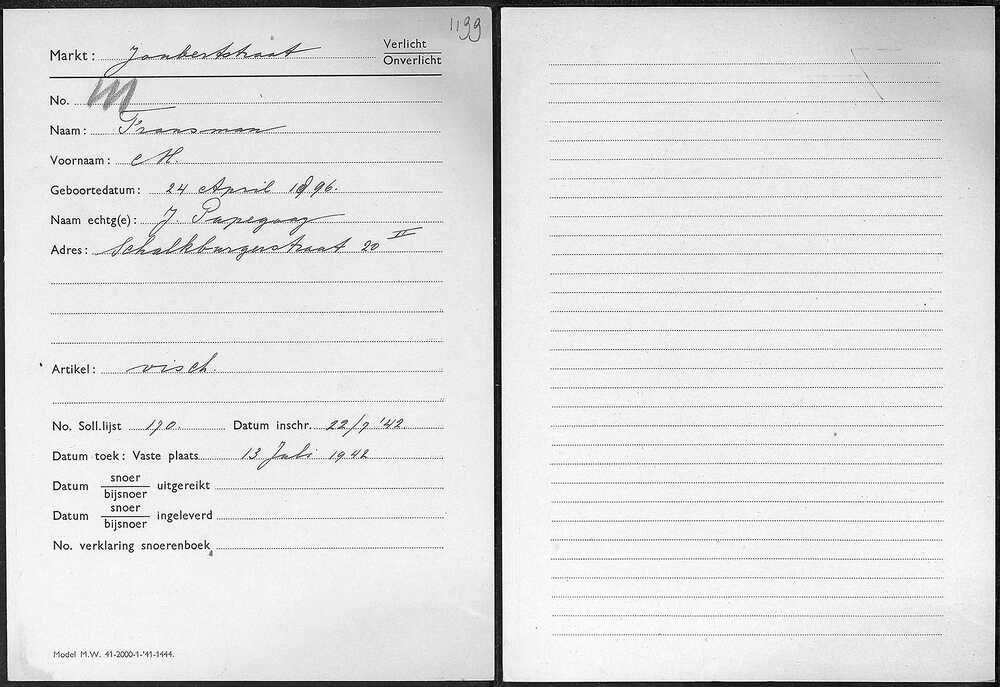 1199
Markt: Joubertstraat Verlicht
Onverlicht
No. M
Naam: Fransman
Voornaam: M.
Geboortedatum: 24 April 1896.
Naam echtg(e): J. Papegaay
Adres: Schalkburgerstraat 20 II
Artikel: visch.
No. Soll.lijst 170. Datum inschr. 22/7 '42
Datum toek: Vaste plaats 13 Juli 1942
Datum snoer uitgereikt
bijsnoer
Datum snoer ingeleverd
bijsnoer
No. verklaring snoerenboek
Model M.W. 41-2000-1-'41-1444.